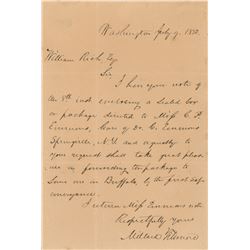 Washington July 9. 1850.
William Rich Esq
Sir
I have your note of
the 8th inst enclosing a sealed box
or package directed to Miss C. F.
Emmons, Care of Dr. C. Emmons
Springville, N.Y and agreeably to
your request shall take great pleas-
ure in forwarding the package to
same me in Buffalo, by the first safe
conveyance.
I return Miss Emmons note
Respectfully yours
Millard Fillmore